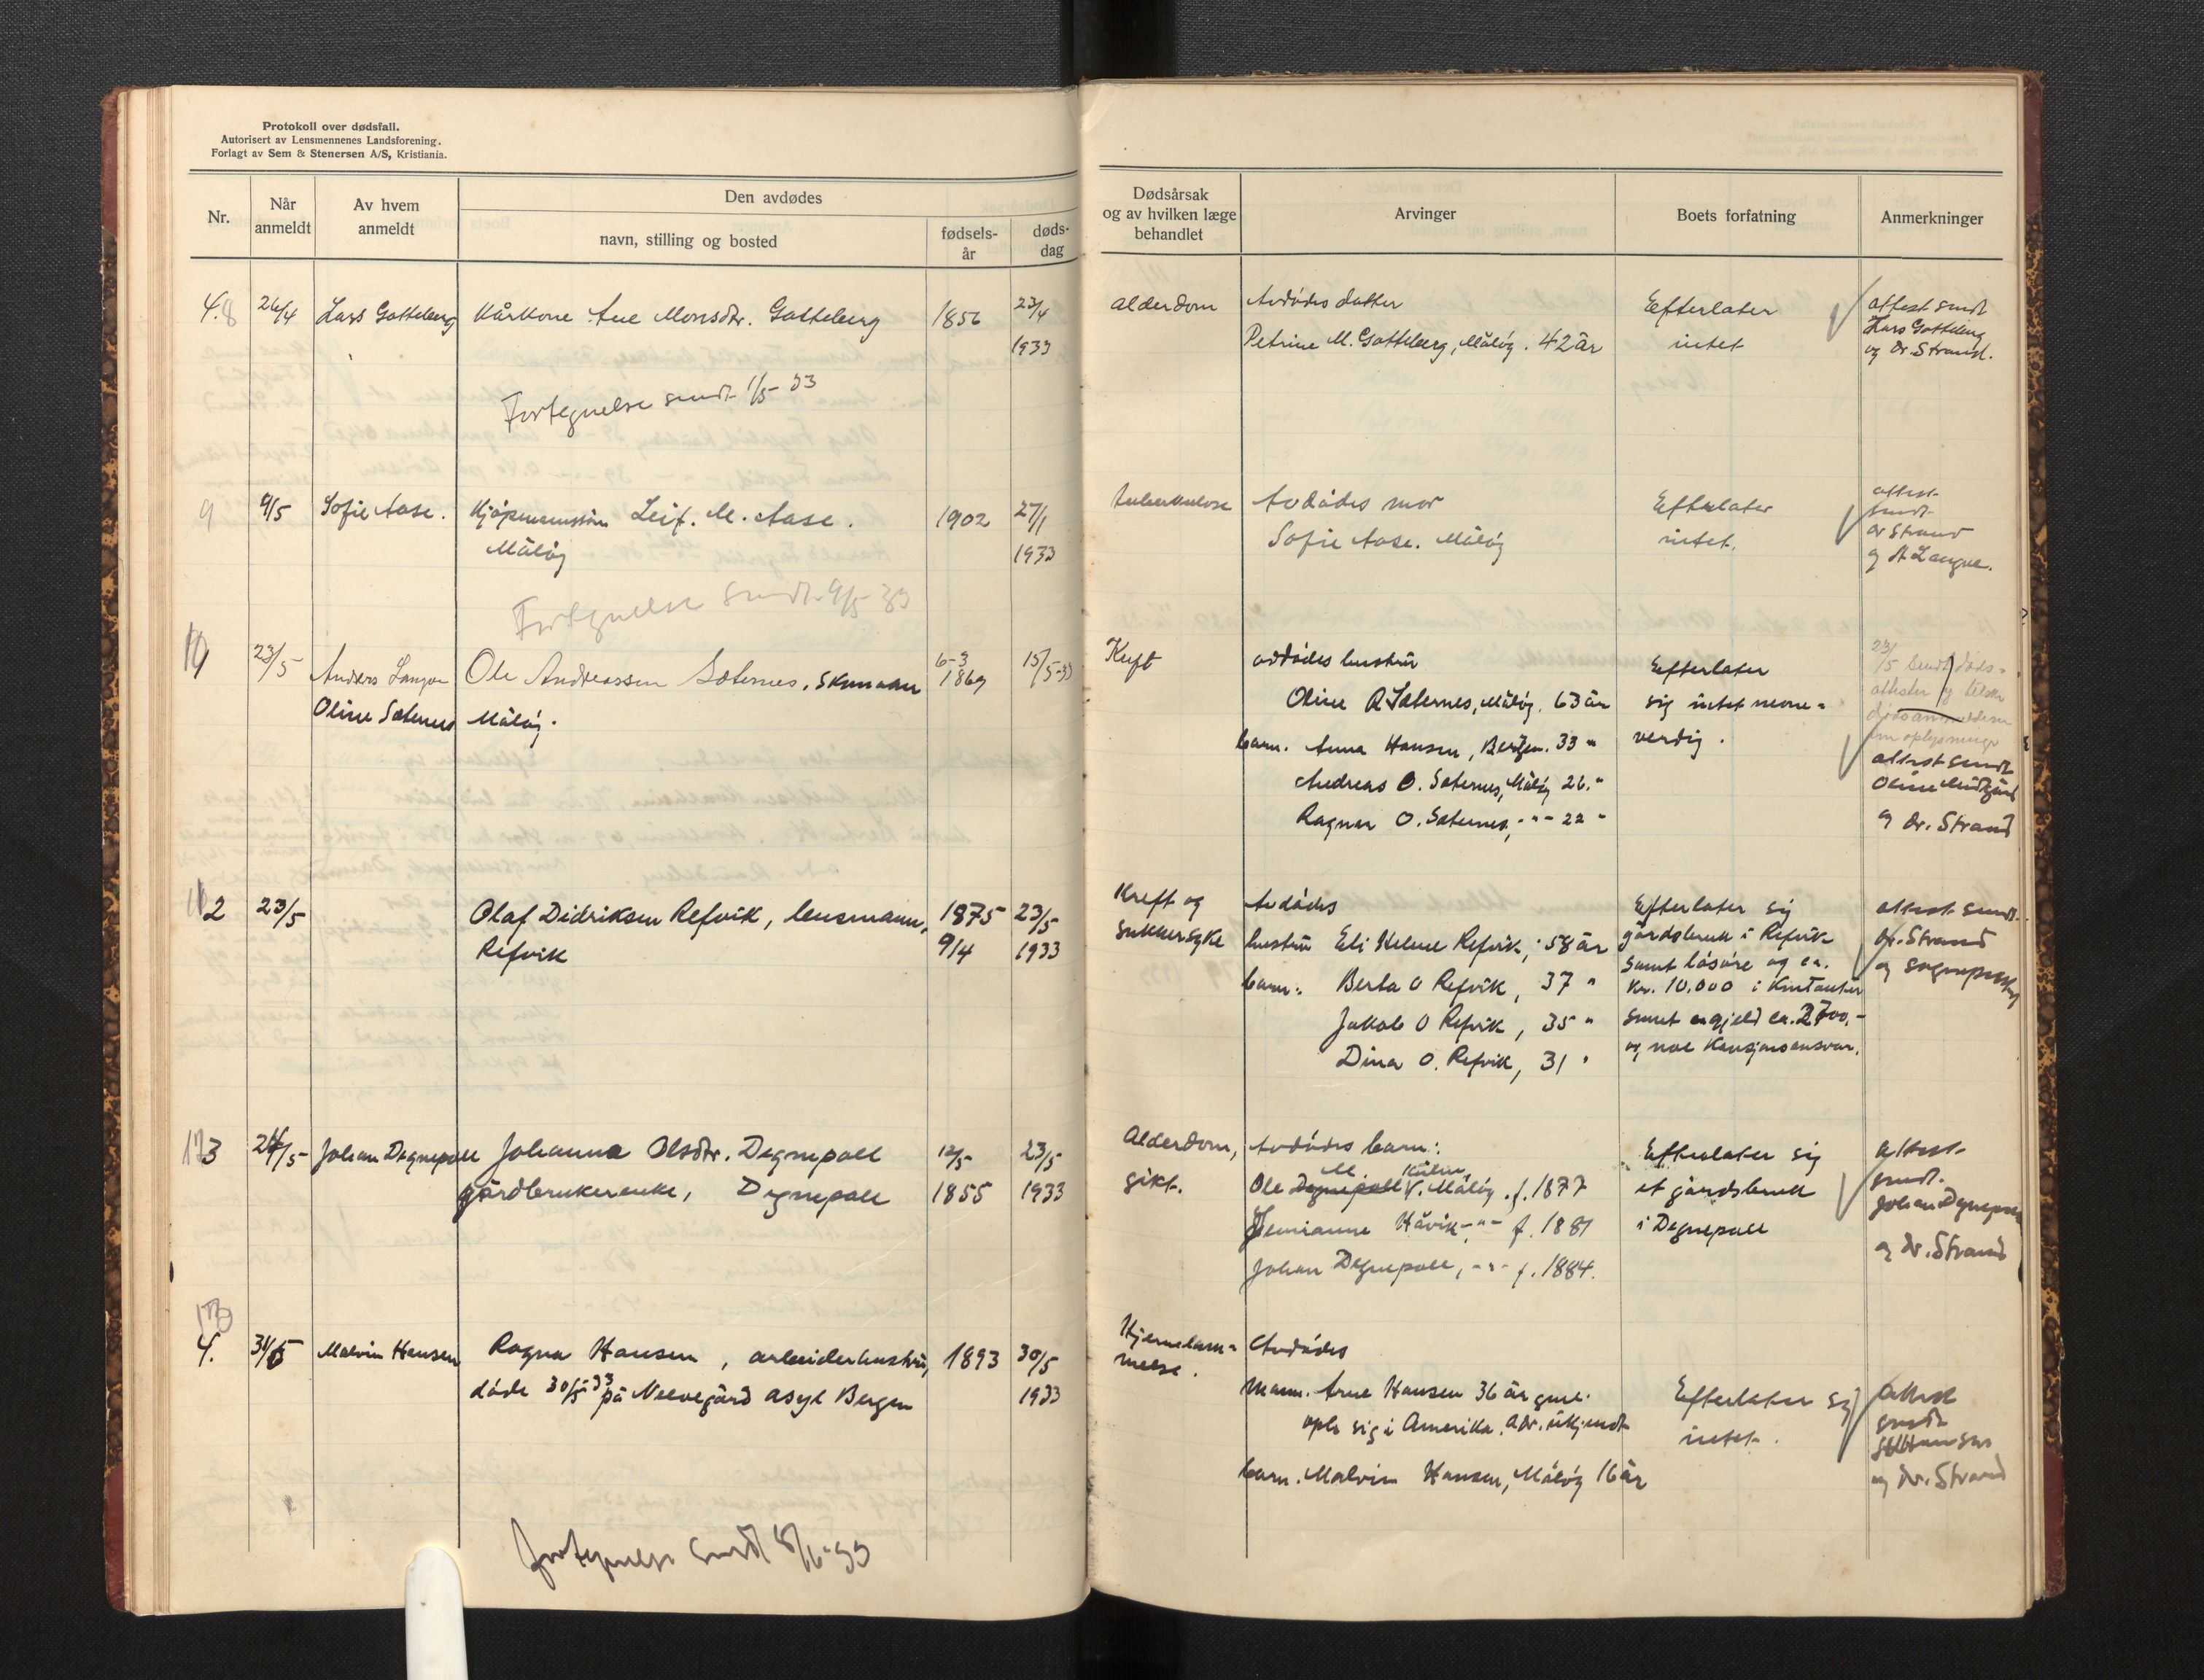 Protokoll over dødsfall.
Autorisert av Lensmennenes Landsforening.
Forlagt av Sem & Stenersen A/S, Kristiania.
Nr.
Når anmeldt
Av hvem anmeldt
Den avdødes
navn, stilling og bosted
fødsels-år
døds-dag
Dødsårsak og av hvilken læge behandlet
Arvinger
Boets forfatning
Anmerkninger
4.8
26/4
Lars Gotteberg
Kårkone Ane Monsdtr. Gotteberg
1856
23/4
1933
Alderdom
Avdødes datter
Petrine M. Gotteberg, Måløy. 42 år
Efterlater
intet
attest sendt
Lars Gotteberg
og dr. Strand.
Fortegnelse sendt 1/5-33
9
9/5
Sofie Aase.
Kjøpmannssøn Leif. M. Aase.
Måløy
1902
27/1
1933
tuberkulose
Avdødes mor
Sofie Aase. Måløy
Efterlater
intet.
attest
sendt
dr Strand
og A Langøe.
Fortegnelse sendt 9/5 33
23/5
Anders Langøe
Oline Sæternes
Ole Andreassen Sæternes, skomaker
Måløy.
6-3
1869
15/5-33
Kreft
avdødes hustru
Oline A Sæternes, Måløy. 63 år
barn. Anna Hansen, Bergen. 33 "
Andreas O. Sæternes, Måløy 26. "
Ragnar O. Sæternes, -"- 22 "
Efterlater
sig intet nevne-
verdig.
23/5 sendt døds-
attester og
attest sendt
Oline
og dr. Strand
2
23/5
Olaf Didriksen Refvik, lensmann,
Refvik
1875
9/4
23/5
1933
Kreft og
sukkersyke
Avdødes
hustru Eli Helene Refvik, 58 år
barn: Berta O Refvik, 37 "
Jakob O Refvik, 35 "
Dina O. Refvik, 31 "
Efterlater sig
gårdsbruk i Refvik
samt løsøre og ca.
kr. 10.000 i kontanter
samt en gjeld ca. 2700,-
og noe kausjonsansvar.
attest sendt
dr. Strand
og sognepresten
3
24/5
Johan Degnepoll
Johanna Olsdtr. Degnepoll
gårdbrukerenke, Degnepoll
12/5
1855
23/5
1933
Alderdom,
gikt.
Avdødes barn:
Ole M. Degnepoll V. Måløy. f. 1877
Jemianne Håvik -"- f. 1881
Johan Degnepoll, -"- f. 1884.
Efterlater sig
et gårdsbruk
i Degnepoll
attest
sendt.
Johan Degnepoll
og dr. Strand
4.
31/5
Malvin Hansen
Ragna Hansen, arbeiderhustru,
døde 30/5-33 på Neevegård asyl Bergen
1893
30/5
1933
Hjernelam-
melse.
Avdødes
Mann. Arne Hansen 36 år gml.
oph. sig i Amerika. Adr. ukjendt
barn. Malvin Hansen, Måløy 16 år
Efterlater sig
intet.
attest
sendt
Hansen
og dr. Strand
fortegnelse sendt